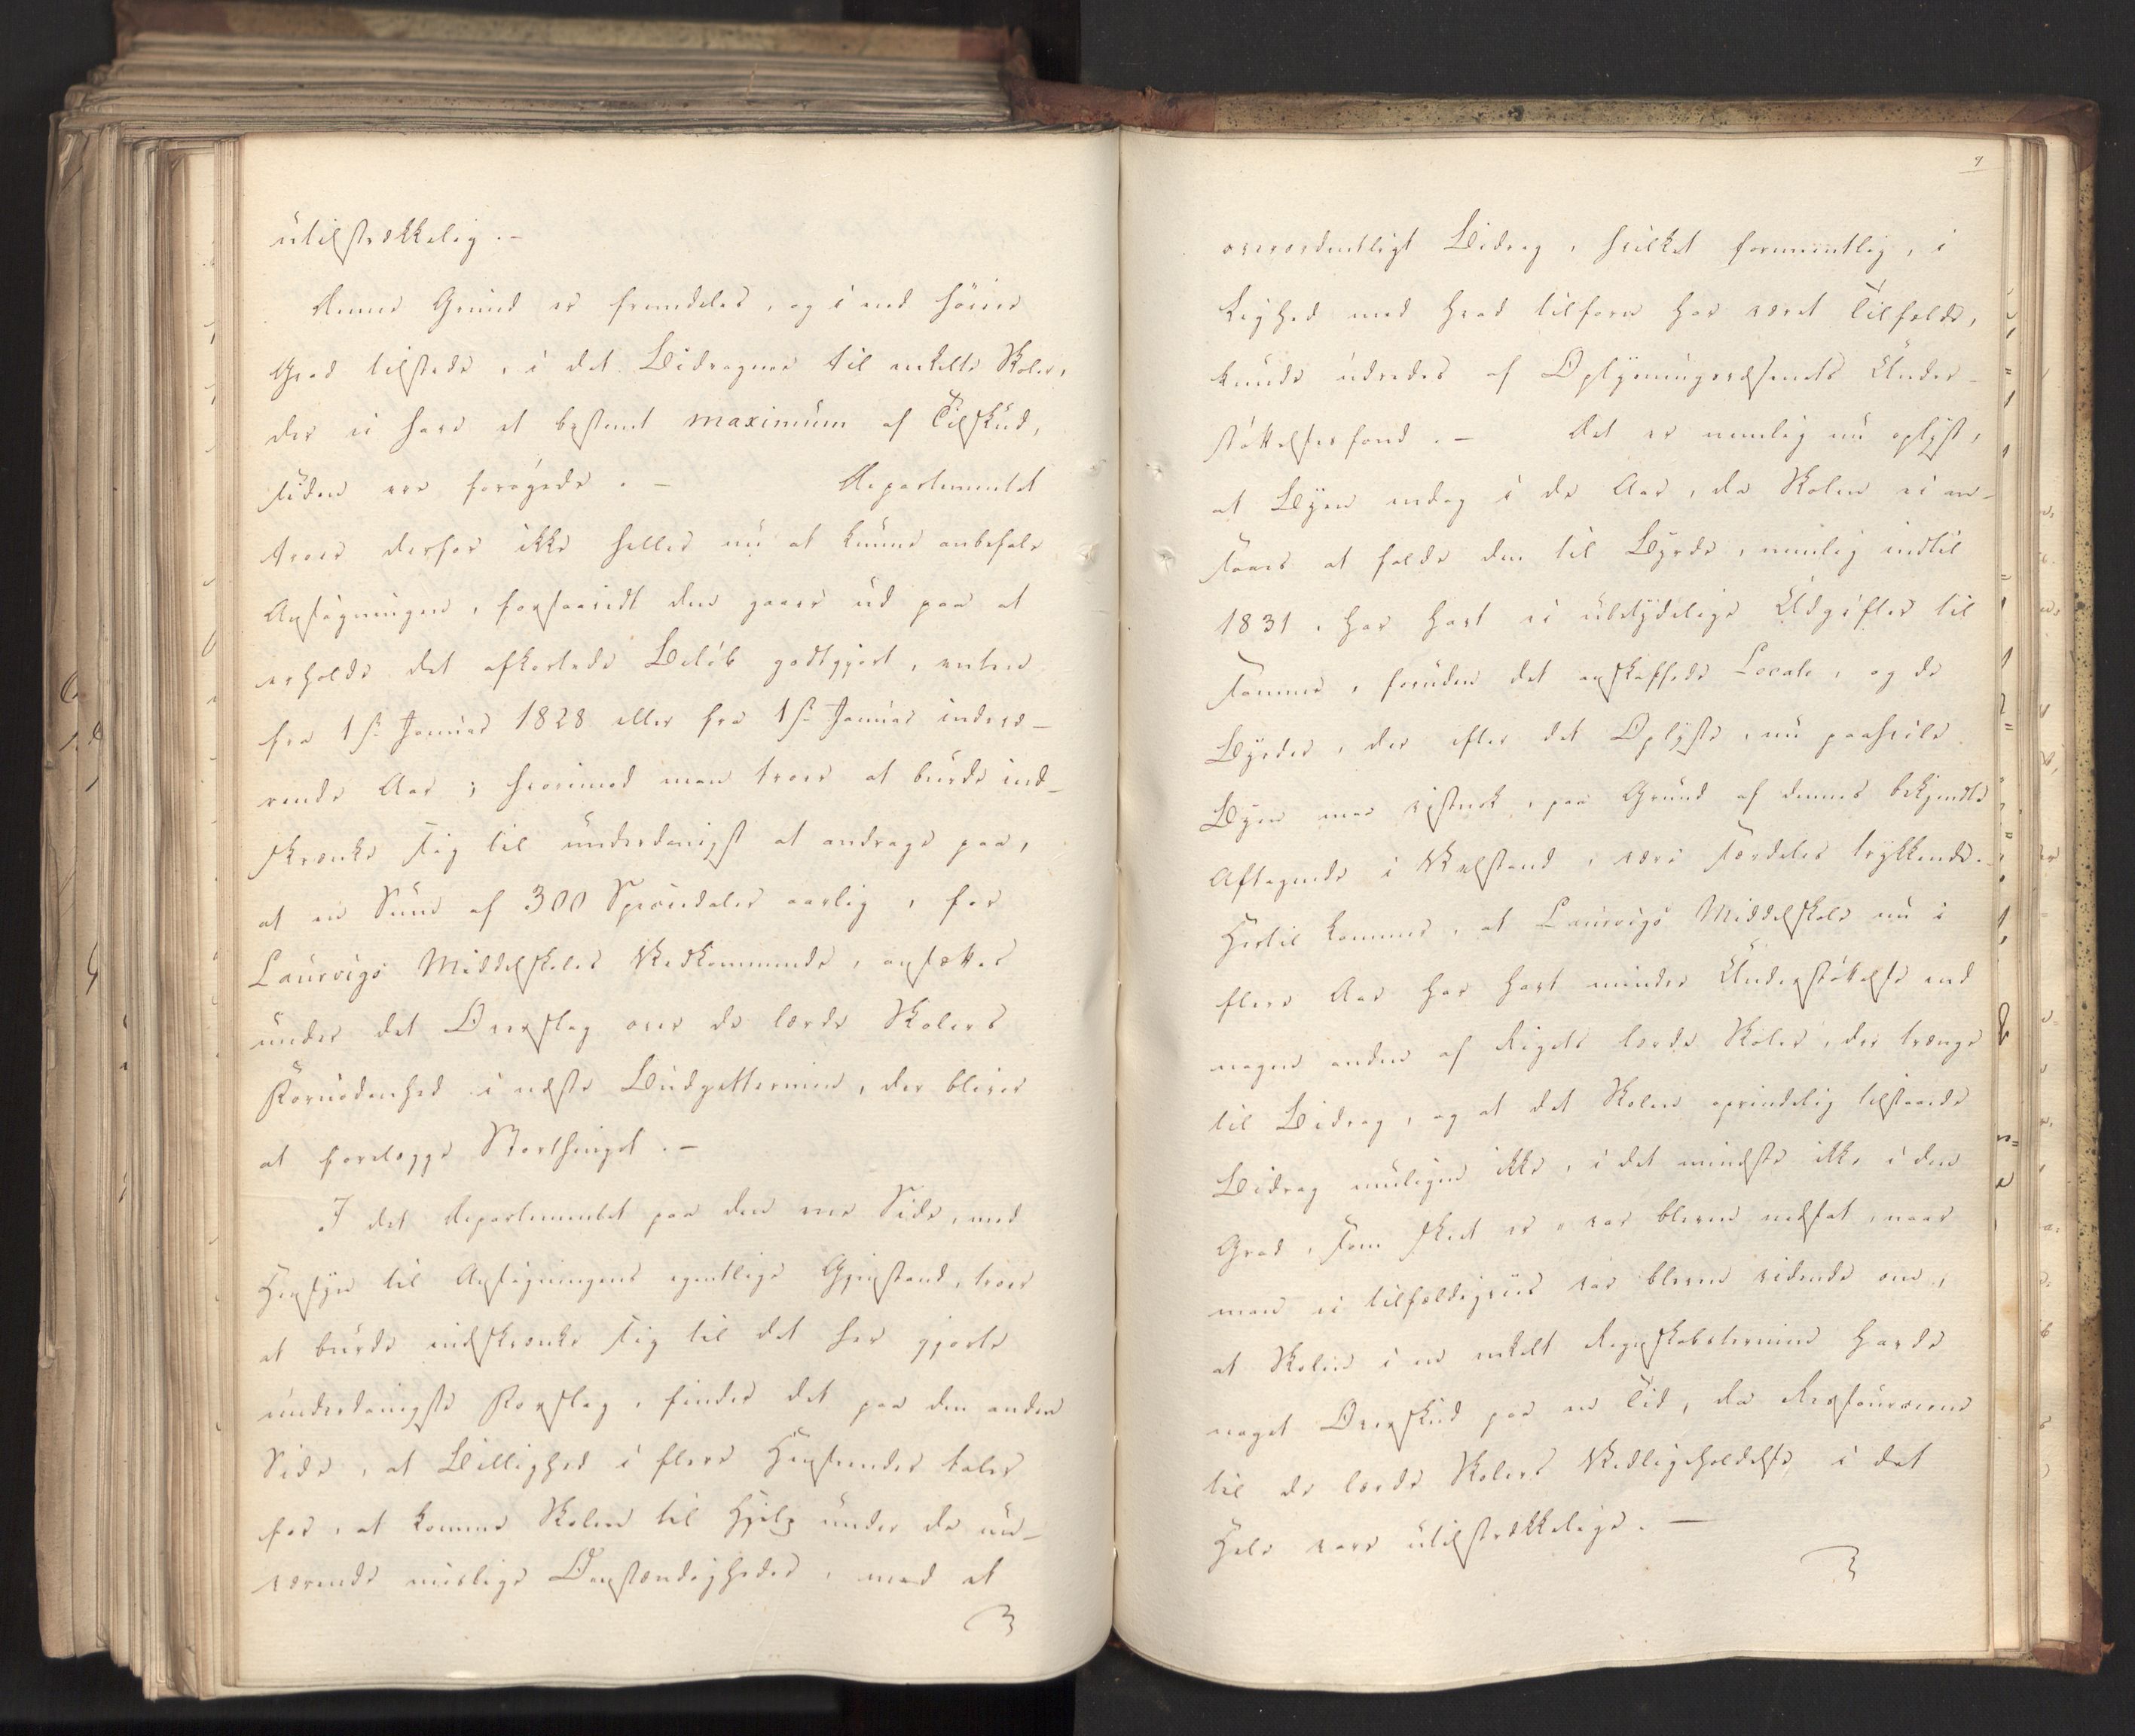 utilstrækkelig. –
Denne Grund er fremdeles, og i end høiere
Grad tilstede, i det Bidragene til enkelte Skoler,
der ei have et bestemt maximum af Tilskud,
siden ere forøgede. – Departementet
troer derfor ikke heller nu at kunne anbefale
Ansøgningen, forsaavidt den gaaer ud paa at
erholde det afkortede Beløb godtgjort, enten
fra 1ste Januar 1828 eller fra 1ste Januar indevæ-
rende Aar; hvorimod man troer at burde ind-
skrænke sig til underdanigst at andrage paa,
at en Sum af 300 Speciedaler aarlig, for
Laurvigs Middelskoles Vedkommende, ansættes
under det Overslag over de lærde Skolers
Fornødenhed i næste Budgettermin, der bliver
at forelægge Storthinget. –
I det Departementet paa den ene Side, med
Hensyn til Ansøgningens egentlige Gjenstand, troer
at burde indskrænke sig til det her gjorte
underdanigste Forslag, finder det paa den anden
Side, at Billighed i flere Henseender taler
for, at komme Skolen til Hjelp under de nu-
værende mislige Omstændigheder, med et
overordentligt Bidrag, hvilket formeentlig, i
Liighed med hvad tilforn har været Tilfælde,
kunde udredes af Oplysningsvæsenets Under-
støttelsesfond. – Det er nemlig nu oplyst,
at Byen endog i de Aar, da Skolen ei an-
saaes at falde den til Byrde, nemlig indtil
1831, har havt ei ubetydelige Udgifter til
samme, foruden det anskaffede Locale, og de
Byrder, der efter det Oplyste, nu paahvile
Byen maa vistnok, paa Grund af dennes bekjendte
Aftagende i Velstand, være særdeles trykkende.
Hertil kommer, at Laurvigs Middelskole nu i
flere Aar har havt mindre Understøttelse end
nogen anden af Rigets lærde Skoler, der trænge
til Bidrag, og at det Skolen oprindelig tilstaaede
Bidrag muligen ikke, i det mindste ikke i den
Grad, som skeet er, var bleven nedsat, naar
man ei tilfældigviis var bleven vidende om,
at Skolen i en enkelt Regnskabstermin havde
noget Overskud paa en Tid, da Ressourcerne
til de lærde Skolers Vedligeholdelse i det
Hele vare utilstrækkelige. –